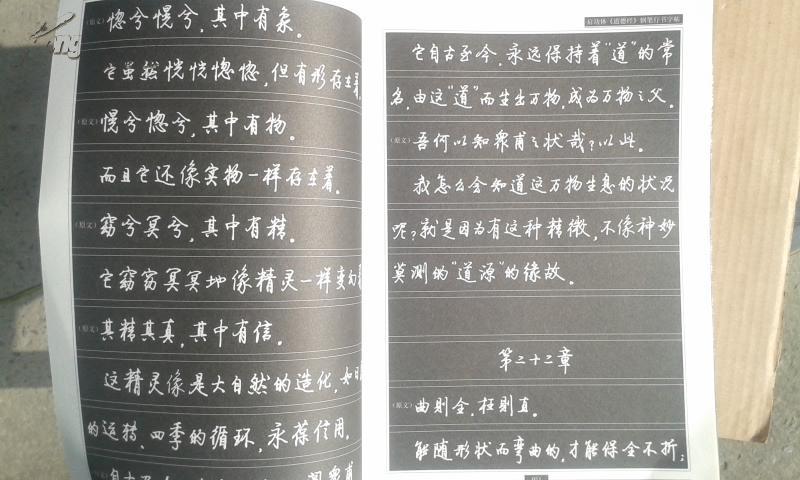 (原文)惚兮恍兮,其中有象。
它虽然恍恍惚惚,但有形存在着,
(原文)恍兮惚兮,其中有物。
而且它还像实物一样存在着。
(原文)窈兮冥兮,其中有精。
它窈窈冥冥地像精灵一样变幻
(原文)其精甚真,其中有信。
这精灵像是大自然的造化,如日
的运转、四季的循环,永葆信用。
启功体《道德经》钢笔行书字帖
它自古至今,永远保持着“道”的常
名,由这“道”而生出万物,成为万物之父。
(原文)吾何以知众甫之状哉?以此。
我怎么会知道这万物生息的状况
呢?就是因为有这种精微,不像神妙
莫测的“道源”的缘故。
第二十二章
(原文)曲则全,枉则直。
能随形状而弯曲的,才能保全不折;